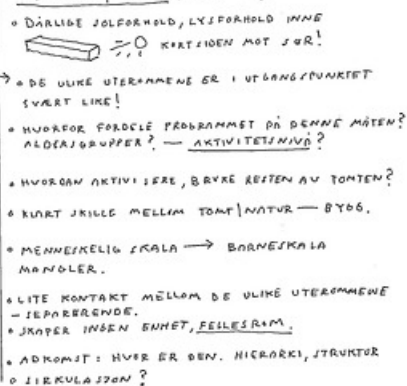 • DÅRLIGE SOLFORHOLD, LYSFORHOLD INNE
KORTSIDEN MOT SØR!
→ • DE ULIKE UTEROMMENE ER I UTGANGSPUNKTET
SVÆRT LIKE!
• HVORFOR FORDELE PROGRAMMET PÅ DENNE MÅTEN?
ALDERSGRUPPER? — AKTIVITETSNIVÅ?
• HVORDAN AKTIVISERE, BRUKE RESTEN AV TOMTEN?
• KLART SKILLE MELLOM TOMT|NATUR — BYGG.
• MENNESKELIG SKALA → BARNESKALA
MANGLER.
• LITE KONTAKT MELLOM DE ULIKE UTEROMMENE
– SEPARERENDE.
• SKAPER INGEN ENHET, FELLESROM.
• ADKOMST: HVOR ER DEN. HIERARKI, STRUKTUR
• SIRKULASJON?